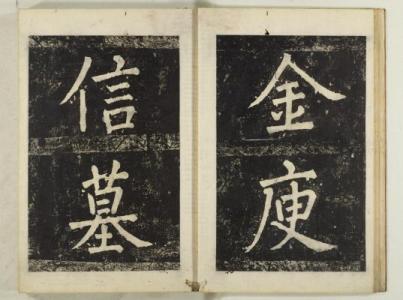 金庾
信墓